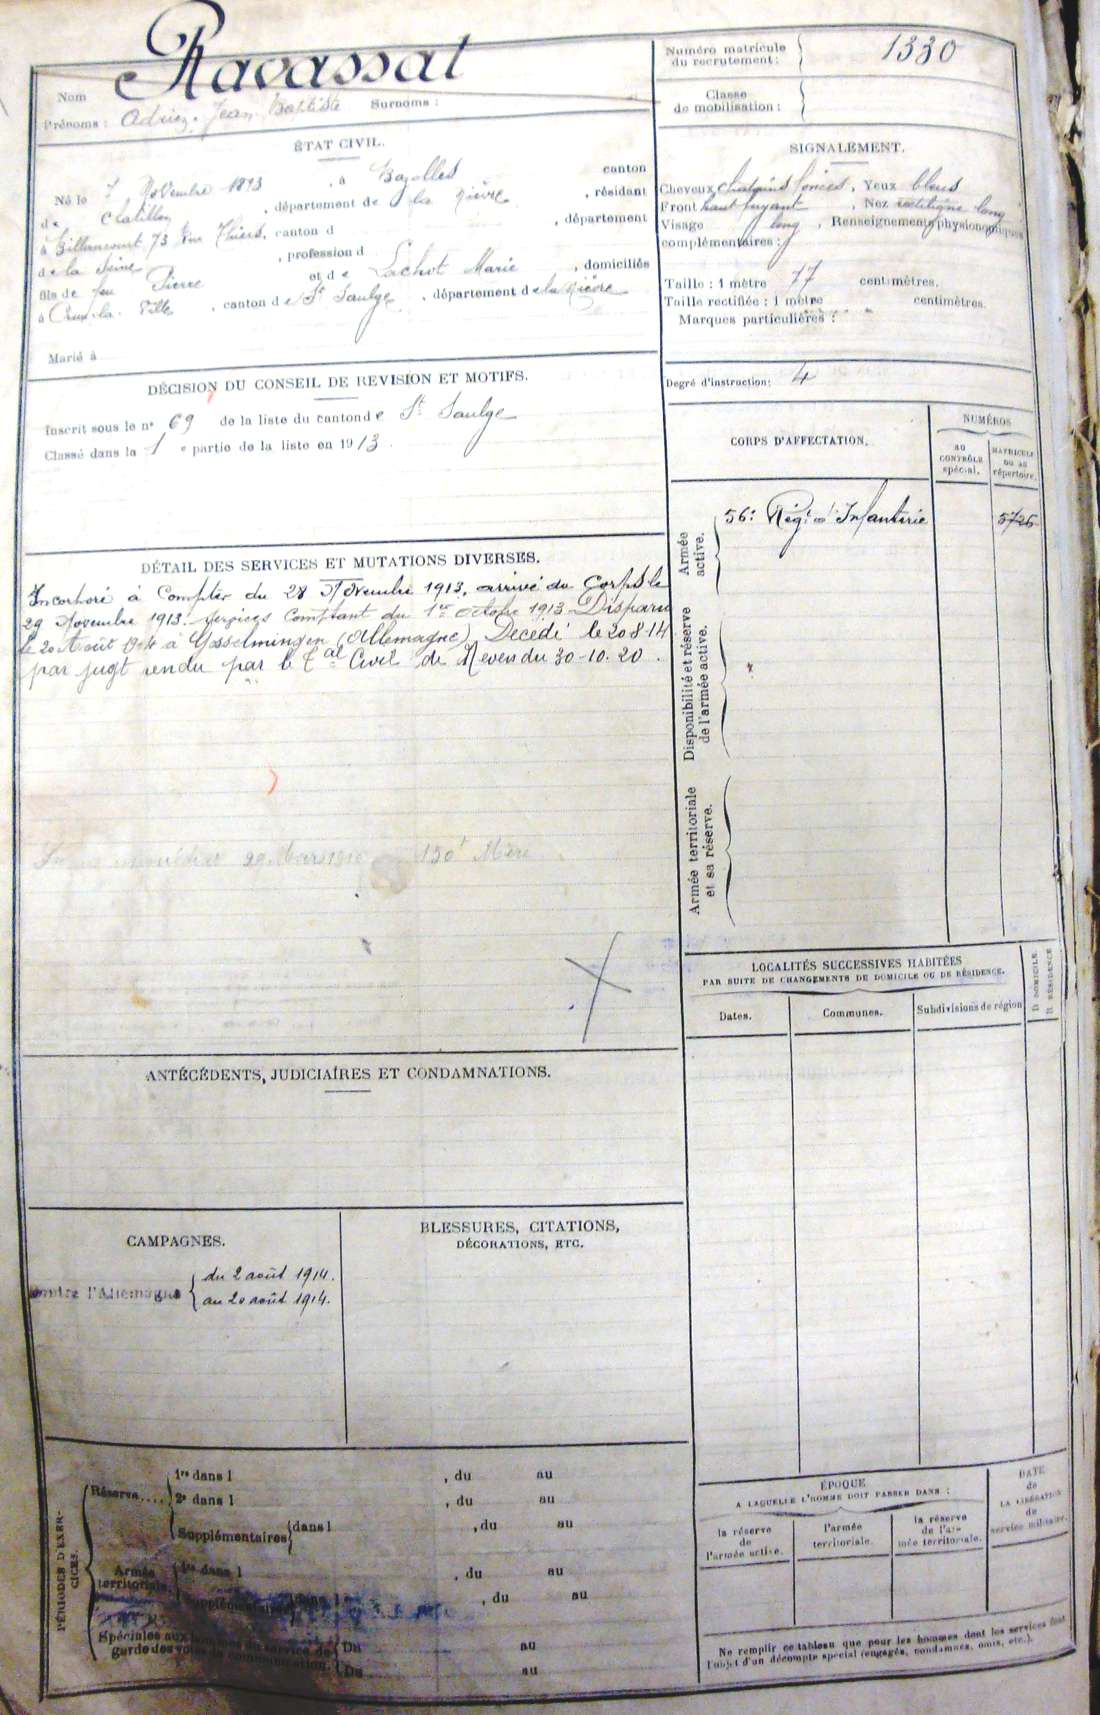 Nom Ravassat
Numéro matricule du recrutement : 1330
Prénoms : Jean Baptiste Surnoms :
Classe de mobilisation :
ÉTAT CIVIL.
Né le 7 Novembre 1893, à Bazolles canton
de Chatillon, département de la Nièvre, résidant
à Billancourt 73 Rue Thiers, canton d , département
de la Seine , profession d
fils de feu Pierre et de Lachot Marie, domiciliés
à Crux-la-Ville, canton de St Saulge, département de la Nièvre
Marié à
SIGNALEMENT.
Cheveux chatains foncés, Yeux bleus
Front haut fuyant, Nez rectiligne long
Visage long, Renseignements physionomiques
complémentaires :
Taille : 1 mètre 77 centimètres.
Taille rectifiée : 1 mètre centimètres.
Marques particulières :
Degré d'instruction : 4
DÉCISION DU CONSEIL DE REVISION ET MOTIFS.
Inscrit sous le n° 69 de la liste du canton de St Saulge
Classé dans la 1e partie de la liste en 1913.
CORPS D'AFFECTATION.
NUMÉROS
AU CONTRÔLE spécial.
MATRICULE OU AU répertoire.
Armée active.
56e Régt d'Infanterie 5725
Disponibilité et réserve de l'armée active.
Armée territoriale et sa réserve.
DÉTAIL DES SERVICES ET MUTATIONS DIVERSES.
Incorporé à Compter du 28 Novembre 1913, arrivé au Corps le
29 Novembre 1913. Services Comptant du 1er Octobre 1913. Disparu
le 20 Août 1914 à Gosselmingen (Allemagne). Décédé le 20 8-14
par jugt rendu par le Tal Civil de Nevers du 30-10.20.
150f Mère
LOCALITÉS SUCCESSIVES HABITÉES
PAR SUITE DE CHANGEMENTS DE DOMICILE OU DE RÉSIDENCE.
Dates.
Communes.
Subdivisions de région
D DOMICILE
R RÉSIDENCE
ANTÉCÉDENTS, JUDICIAÍRES ET CONDAMNATIONS.
CAMPAGNES.
contre l'Allemagne
du 2 août 1914.
au 20 août 1914.
BLESSURES, CITATIONS,
DÉCORATIONS, ETC.
PÉRIODES D'EXER-
CICES.
Réserve....
1re dans l , du au
2e dans l , du au
Supplémentaires dans l , du au
Armée territoriale
1re dans l , du au
Supplémentaires dans l , du au
Spéciales aux hommes du service de
garde des voies de communication.
Du au
Du au
ÉPOQUE
A LAQUELLE L'HOMME DOIT PASSER DANS :
la réserve de l'armée active.
l'armée territoriale.
la réserve de l'armée territoriale.
DATE de LA LIBÉRATION du service militaire.
Ne remplir ce tableau que pour les hommes dont les services font
l'objet d'un décompte spécial (engagés, condamnés, omis, etc.).